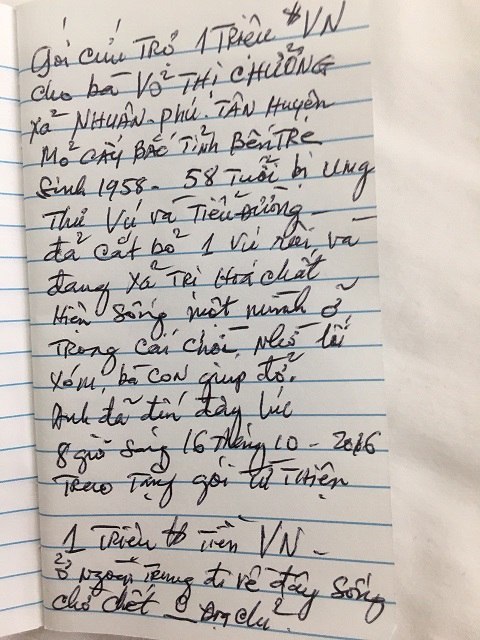 Gói cứu Trợ 1 Triệu $ VN
cho bà Võ Thị CHƯỞNG
xã NHUẬN-PHÚ. TÂN Huyện
MỎ CÀY BẮC Tỉnh BẾN TRE
Sinh 1958 - 58 Tuổi bị ung
Thư Vú và Tiểu Đường -
đã cắt bỏ 1 vú rồi, và
đang Xạ Trị Hoá chất
Hiện Sống một mình ở
Trong cái chòi, Nhờ lối
xóm, bà con giúp đỡ.
Anh đã đến đây lúc
8 giờ sáng 16 tháng 10 - 2016
Trao Tặng gói từ Thiện
1 Triệu $ Tiền VN -
Ở Ngoài Trung đi về đây sống
chờ chết